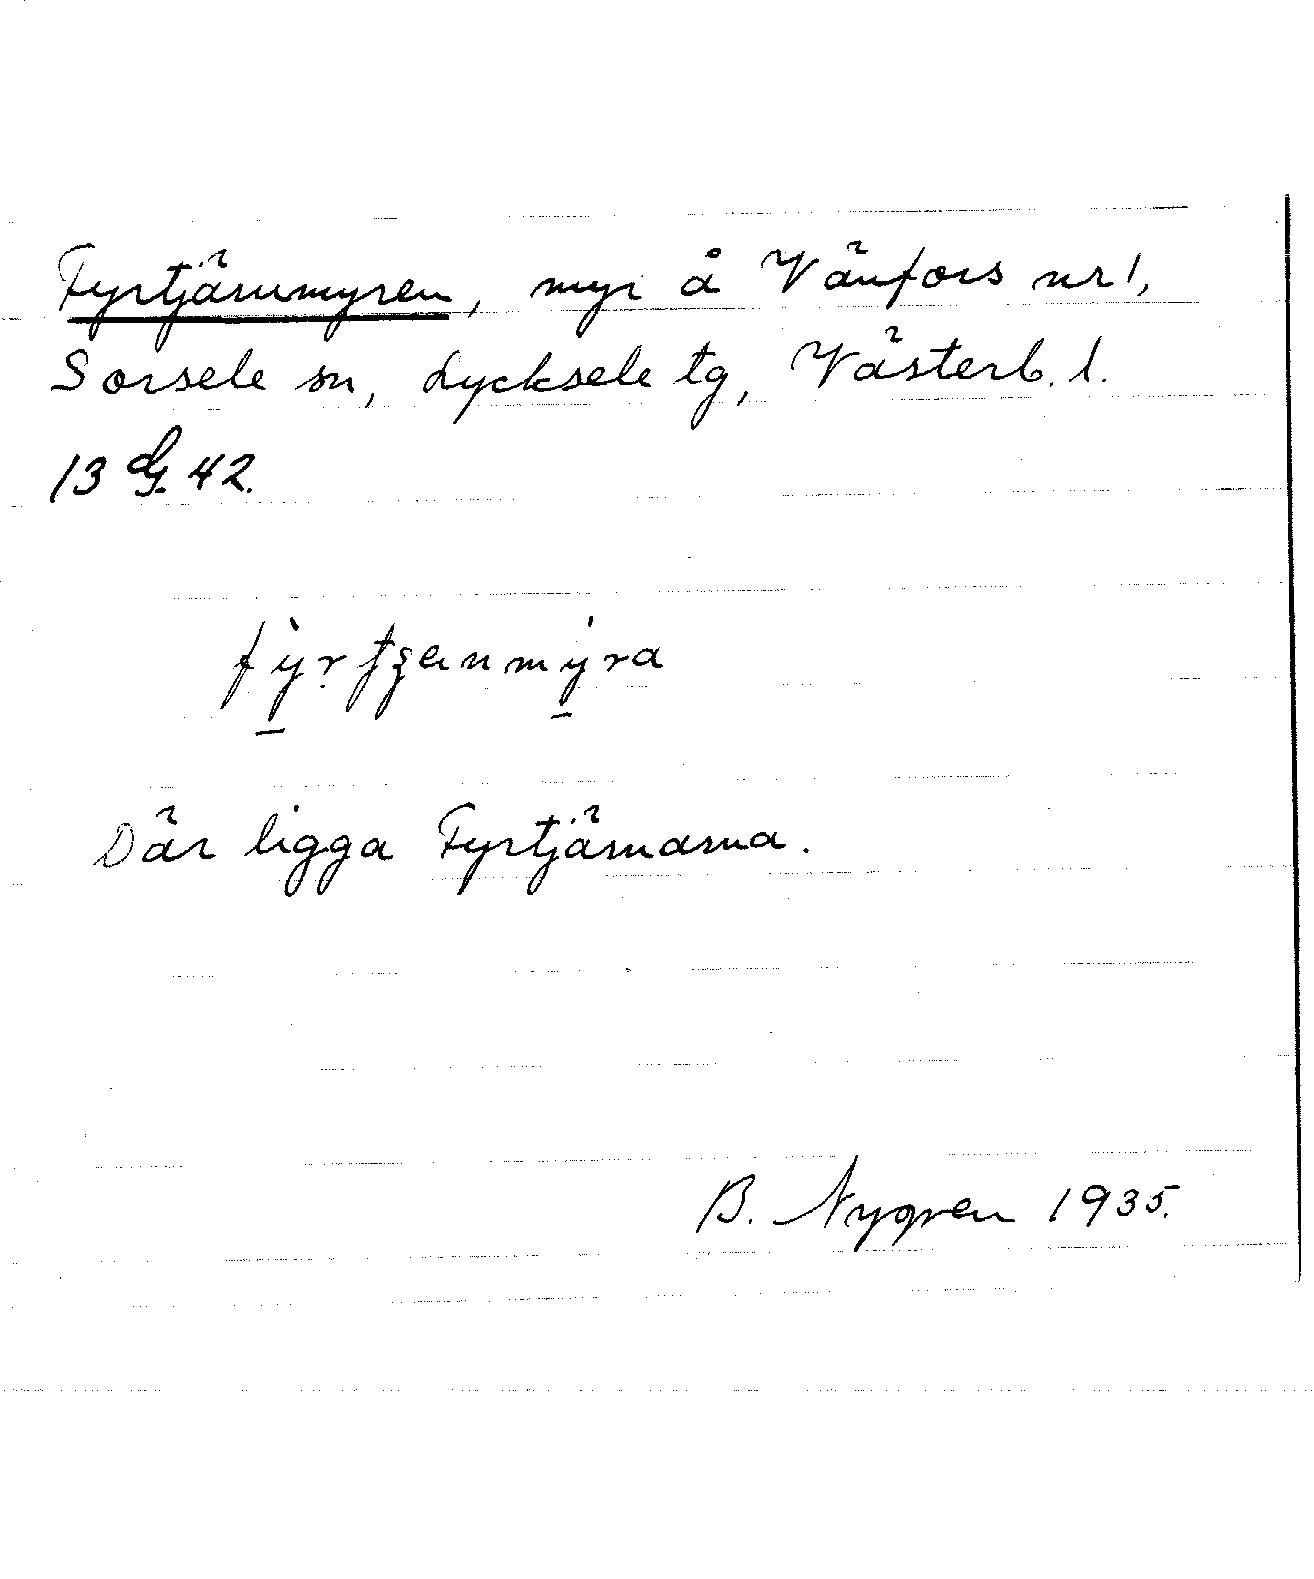 Fyrtjärnmyren, myr å Vänfors nr 1,
Sorsele sn, Lycksele tg, Västerb. l.
13 G. 42.
Där ligga Fyrtjärnarna.
B. Nygren 1935.